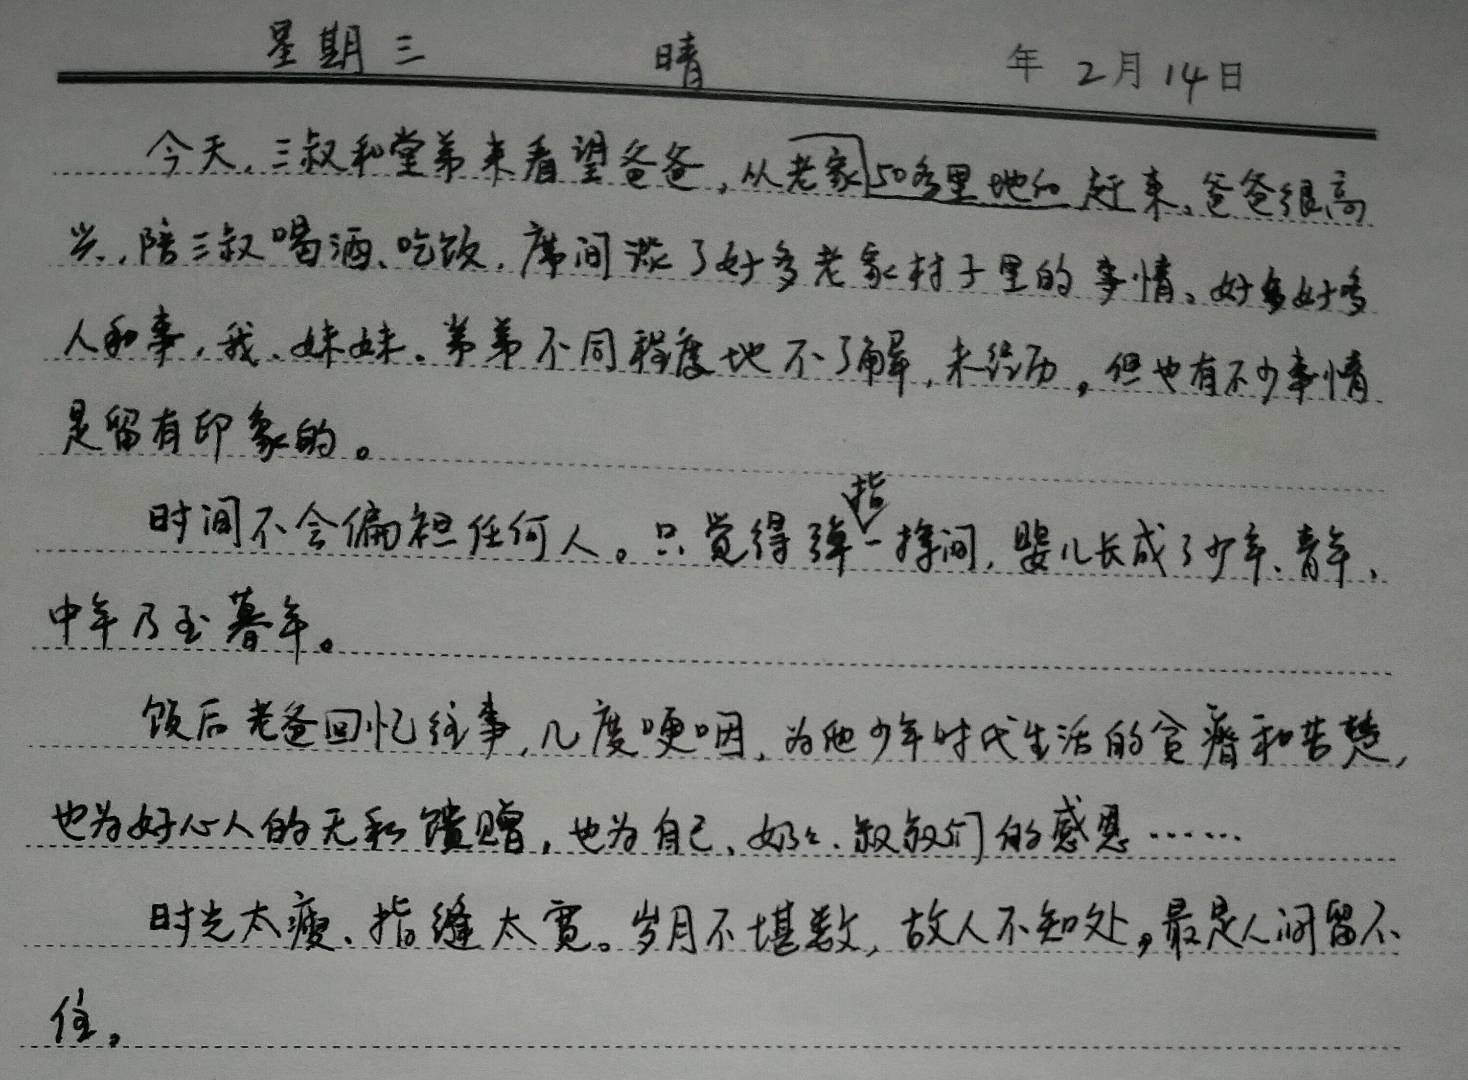 星期三 晴 年 2月14日
今天,三叔和堂弟来看望爸爸,从老家50多里地的赶来,爸爸很高
兴,陪三叔喝酒、吃饭,席间谈了好多老家村子里的事情,好多好多
人和事,我、妹妹、弟弟不同程度地不了解,未经历,但也有不少事情
是留有印象的。
时间不会偏袒任何人。只觉得弹指一挥间,婴儿长成了少年、青年、
中年乃至暮年。
饭后老爸回忆往事,几度哽咽,为他少年时代生活的贫瘠和苦楚,
也为好心人的无私馈赠,也为自己、奶奶、叔叔们的感恩……
时光太瘦、指缝太宽。岁月不堪数,故人不知处,最是人间留不
住。